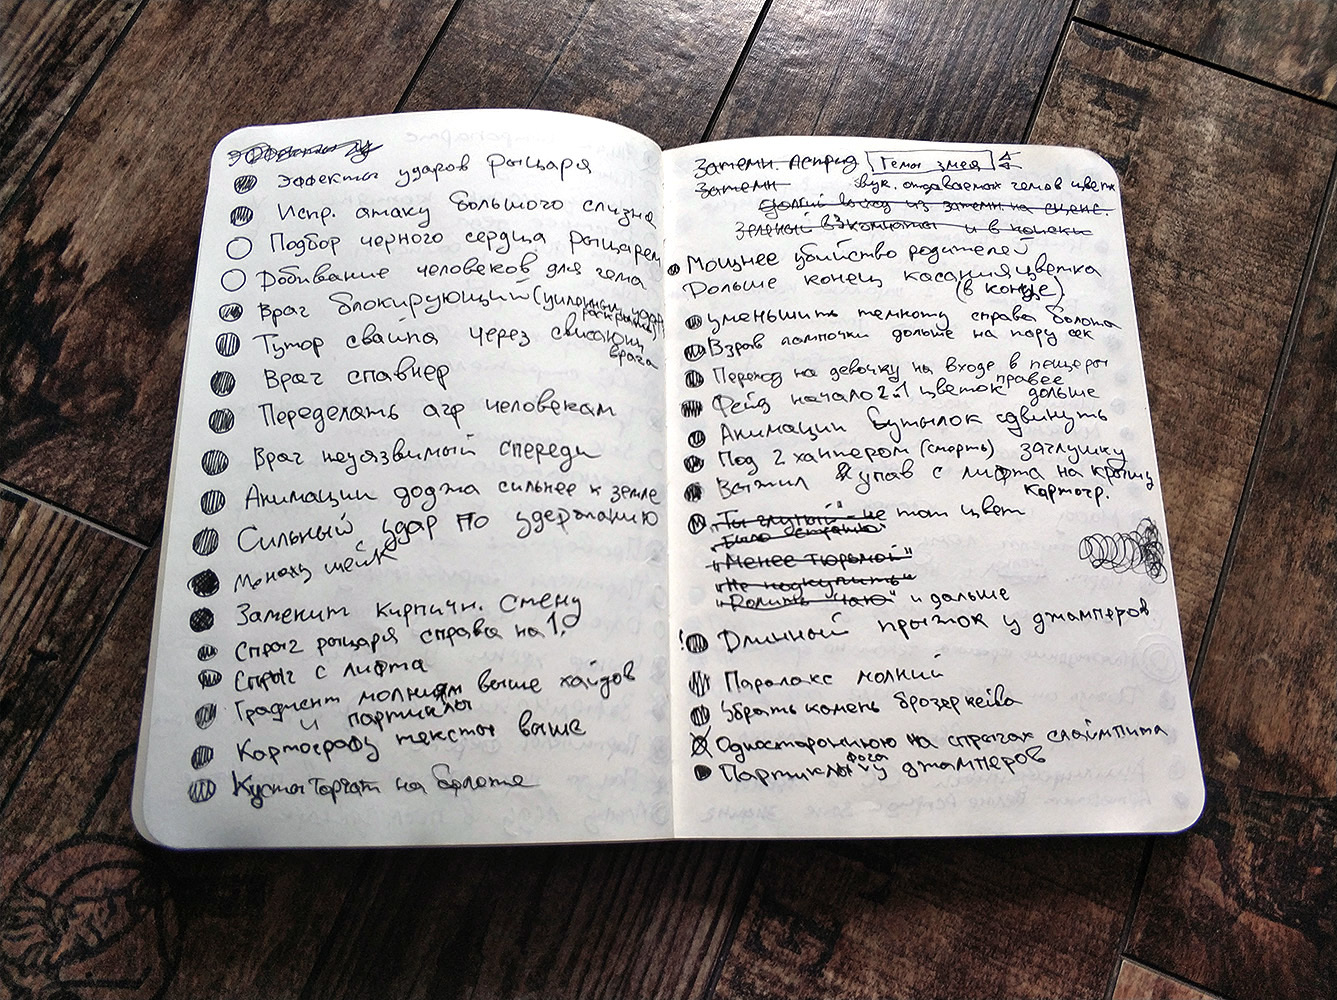 Эффекты ударов рыцаря
Испр. атаку большого слизня
Подбор черного сердца рыцарем
Добивание человеков для гема
Враг блокирующий (усиленный удар
раскрывает)
Тутор свайпа через свисающ
врага
Враг спавнер
Переделать агр человекам
Враг неуязвимый спереди
Анимации доджа сильнее к земле
Сильный удар по удержанию
Монаху шейк
Заменит кирпичн. стену
Спрыг рыцаря справа на 1.
Спрыг с лифта
Градиент молниям выше хайдов
и партиклы
Картографу тексты выше
Кусты торчат на болоте
Затемн. Астрид Гемы змея
Затемн звук. отдаваемых гемов цветк
Долгий выход из затемн. на сценс.
Зеленый в 3 комнаты и в
Мощнее убийство родителей
Дольше конец касания цветка
(в конце)
уменьшить темноту справа болота
Взрыв лампочки дольше на пару сек
Переход на девочку на входе в пещеры
правее
Фейд начало 2.1 цветок дольше
Анимации бутылок сдвинуть
Под 2 хантером (смерть) заглушку
Выжил упав с лифта на крышу
картогр.
"Ты глупый" - не тот цвет
"Было страшно"
"Менее тюрьмой"
"Не подкупить"
"Долить чаю" и дальше
! Длинный прыжок у джамперов
Паралакс молний
Убрать камень брозер кейва
Одностороннюю на спрыгах слаймпита
фога
Партиклы у джамперов